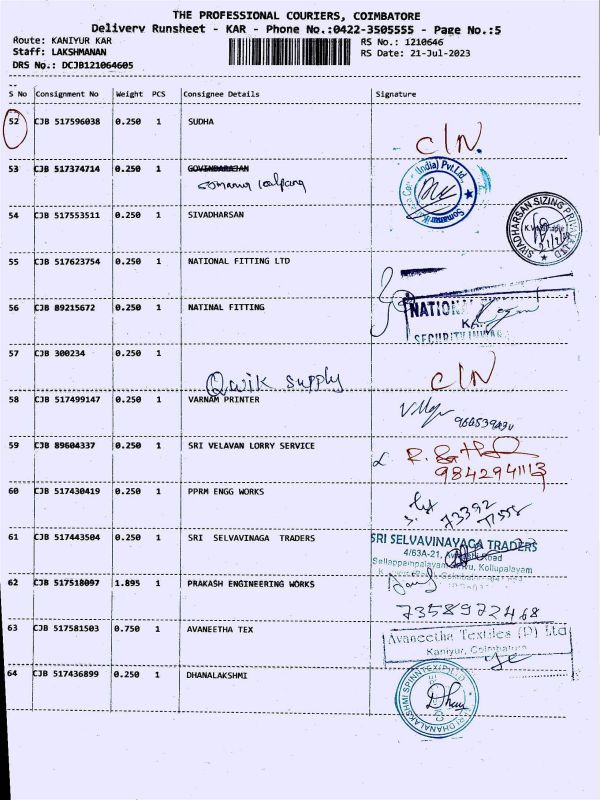 THE PROFESSIONAL COURIERS, COIMBATORE
Delivery Runsheet - KAR - Phone No.:0422-3505555 - Page No.:5
Route: KANIYUR KAR
RS No.: 1210646
Staff: LAKSHMANAN
RS Date: 21-Jul-2023
DRS No.: DCJB121064605
S No Consignment No Weight PCS Consignee Details Signature
52 CJB 517596038 0.250 1 SUDHA
C/N.
53 CJB 517374714 0.250 1 GOVINDARAJAN
(India) Pvt.Ltd
54 CJB 517553511 0.250 1 SIVADHARSAN
SIVADHARSAN SIZING PRIVATE LTD
55 CJB 517623754 0.250 1 NATIONAL FITTING LTD
56 CJB 89215672 0.250 1 NATINAL FITTING
NATION
SECURITY INWA
57 CJB 300234 0.250 1
Qwik supply
C/N
58 CJB 517499147 0.250 1 VARNAM PRINTER
59 CJB 89604337 0.250 1 SRI VELAVAN LORRY SERVICE
9842941113
60 CJB 517430419 0.250 1 PPRM ENGG WORKS
73392
61 CJB 517443504 0.250 1 SRI SELVAVINAGA TRADERS
SRI SELVAVINAYAGA TRADERS
4/63A-21, Road
Kollupalayam
62 CJB 517518097 1.895 1 PRAKASH ENGINEERING WORKS
7358972468
63 CJB 517581503 0.750 1 AVANEETHA TEX
Avaneetha Textiles (P) Ltd
Kaniyur, Coimbatore
64 CJB 517436899 0.250 1 DHANALAKSHMI
SRI DHANALAKSHMI SPINNTEX